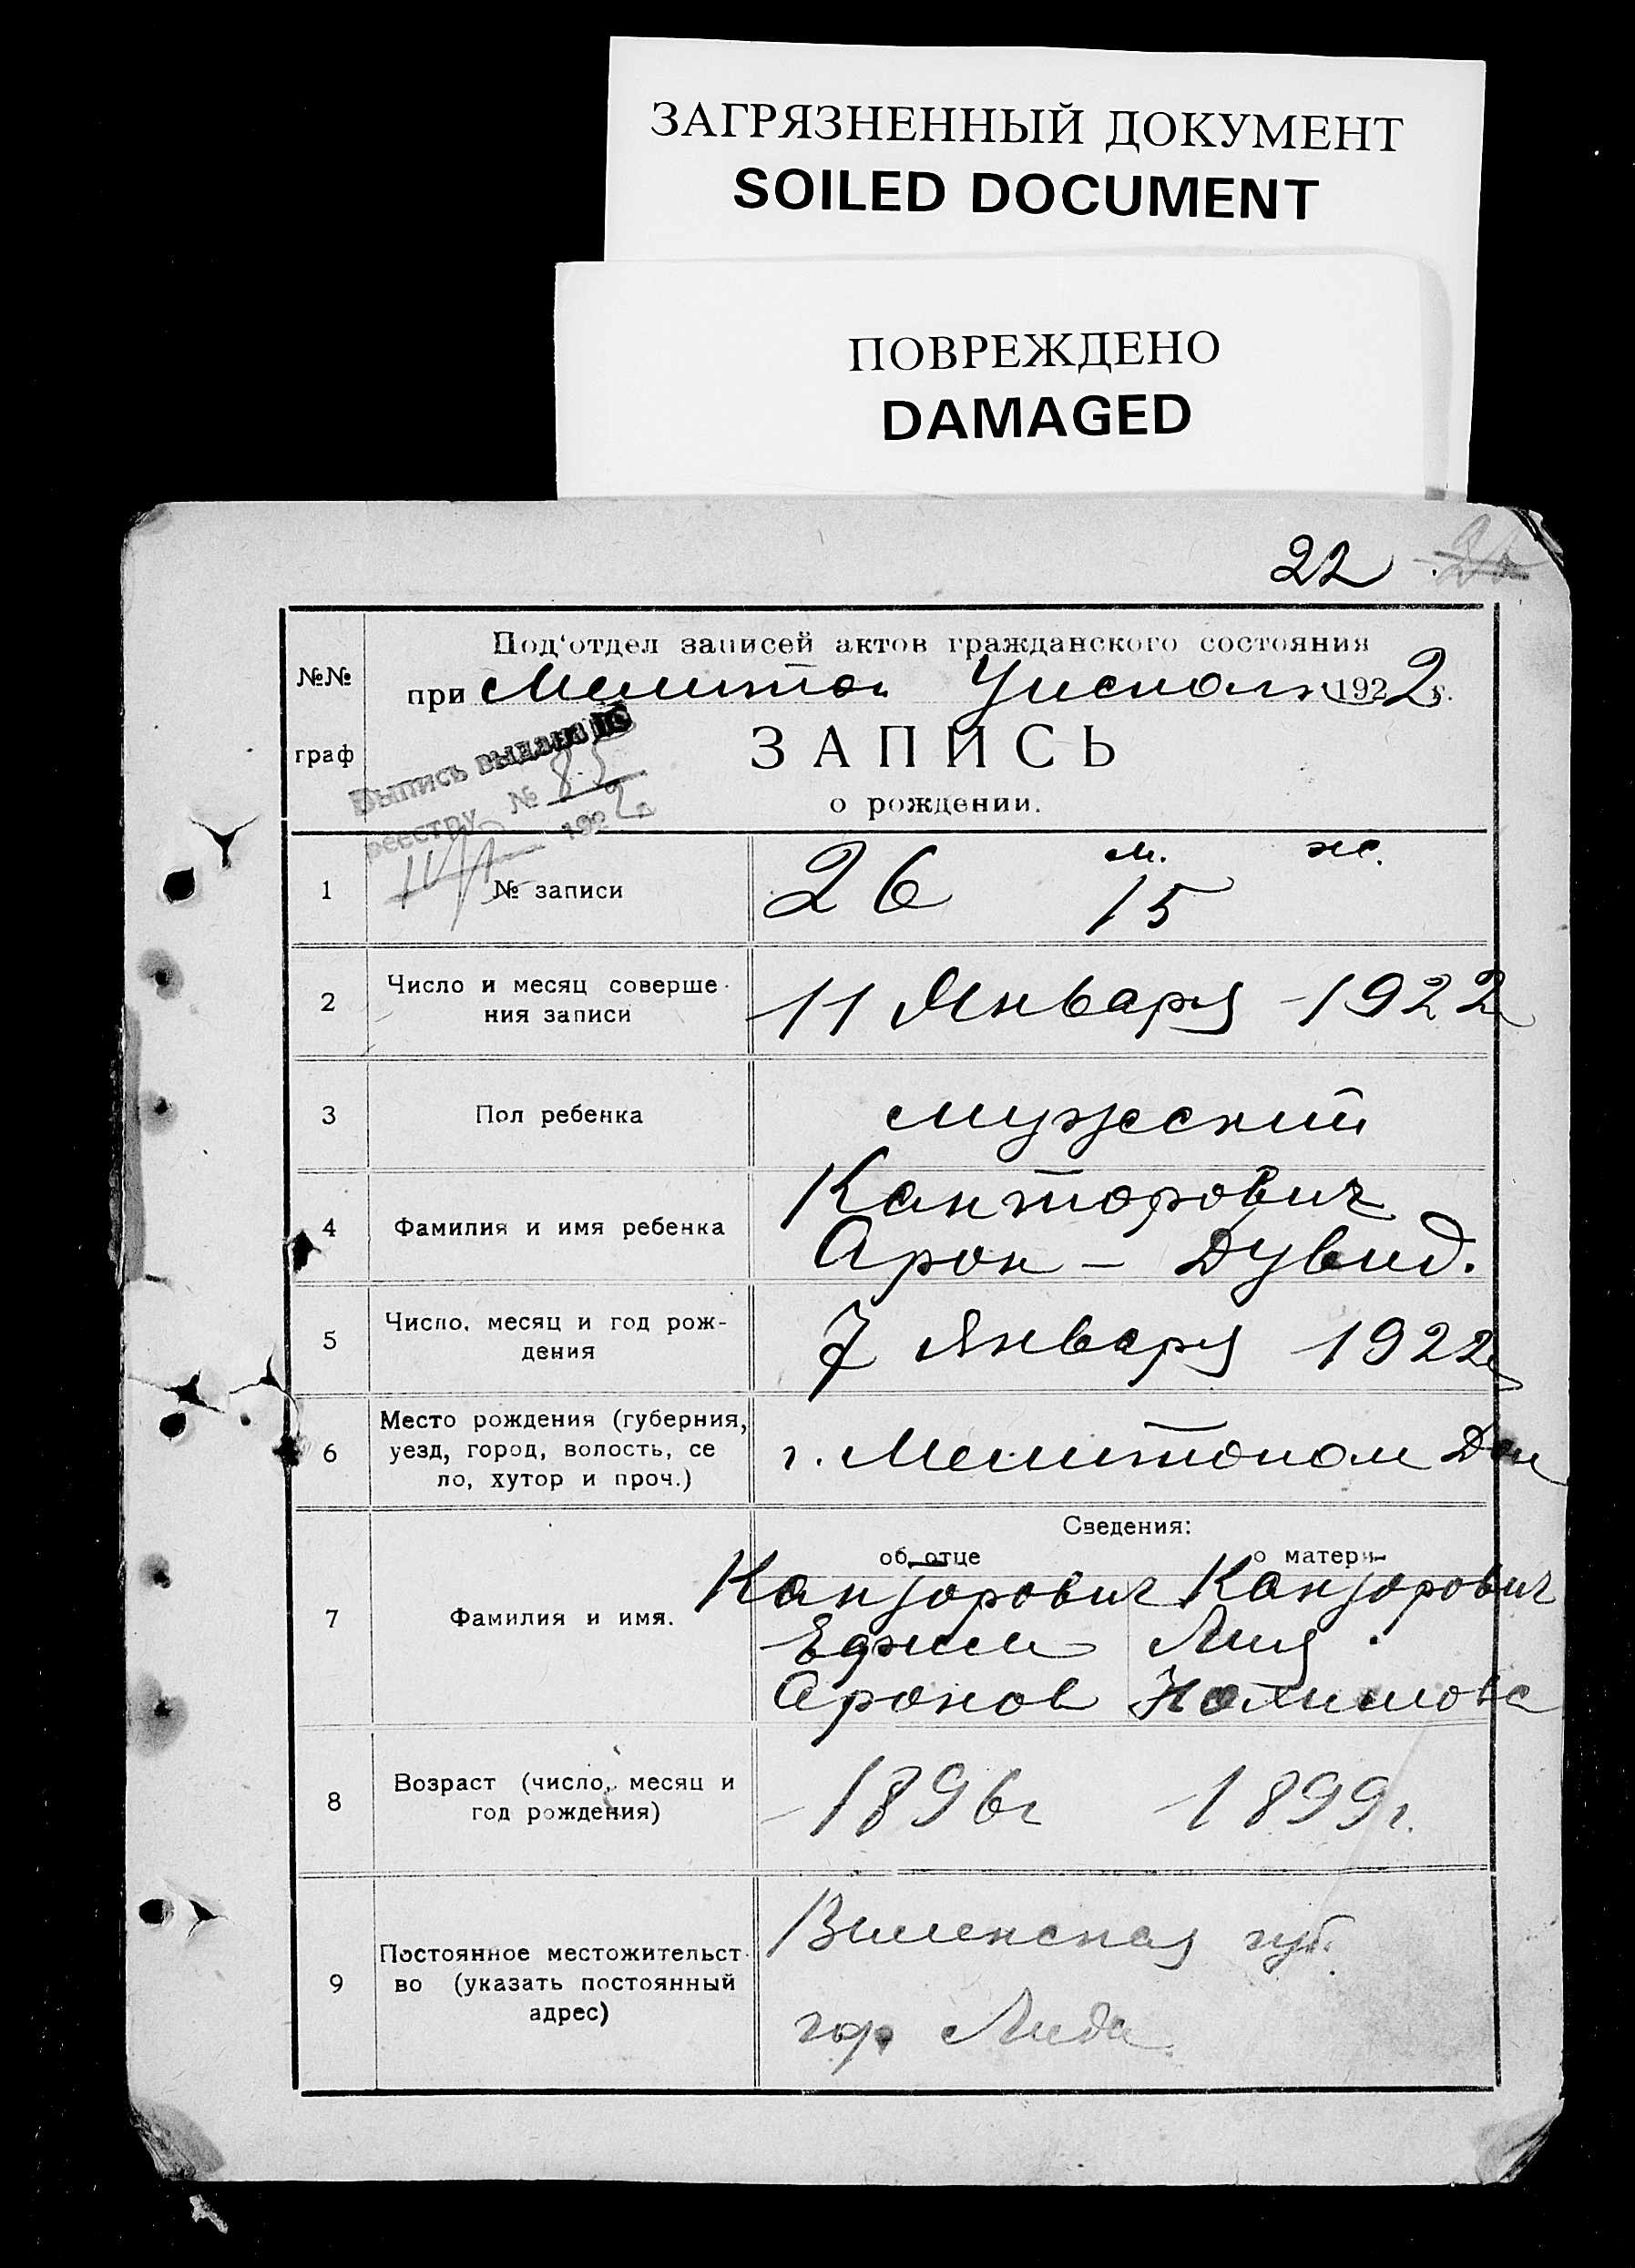 ЗАГРЯЗНЕННЫЙ ДОКУМЕНТ
SOILED DOCUMENT
ПОВРЕЖДЕНО
DAMAGED
22
№№ граф
Под‘отдел записей актов гражданского состояния
при Мелитоп Уисполк 1922 г.
ЗАПИСЬ
о рождении.
Выпись выдана по
реестру № 85
1922 г.
1 № записи 26 м. 15 ж.
2 Число и месяц соверше-
ния записи 11 Января 1922
3 Пол ребенка мужеский
4 Фамилия и имя ребенка Канторович
Арон - Дувид.
5 Число, месяц и год рож-
дения 7 Января 1922
6 Место рождения (губерния,
уезд, город, волость, се
ло, хутор и проч.) г. Мелитополе
Сведения:
об отце о матери
7 Фамилия и имя. Канторович Канторович
Ефим Лия
Аронов
8 Возраст (число, месяц и
год рождения) 1896г 1899г.
9 Постоянное местожительст-
во (указать постоянный
адрес) Виленская губ.
гор Лида